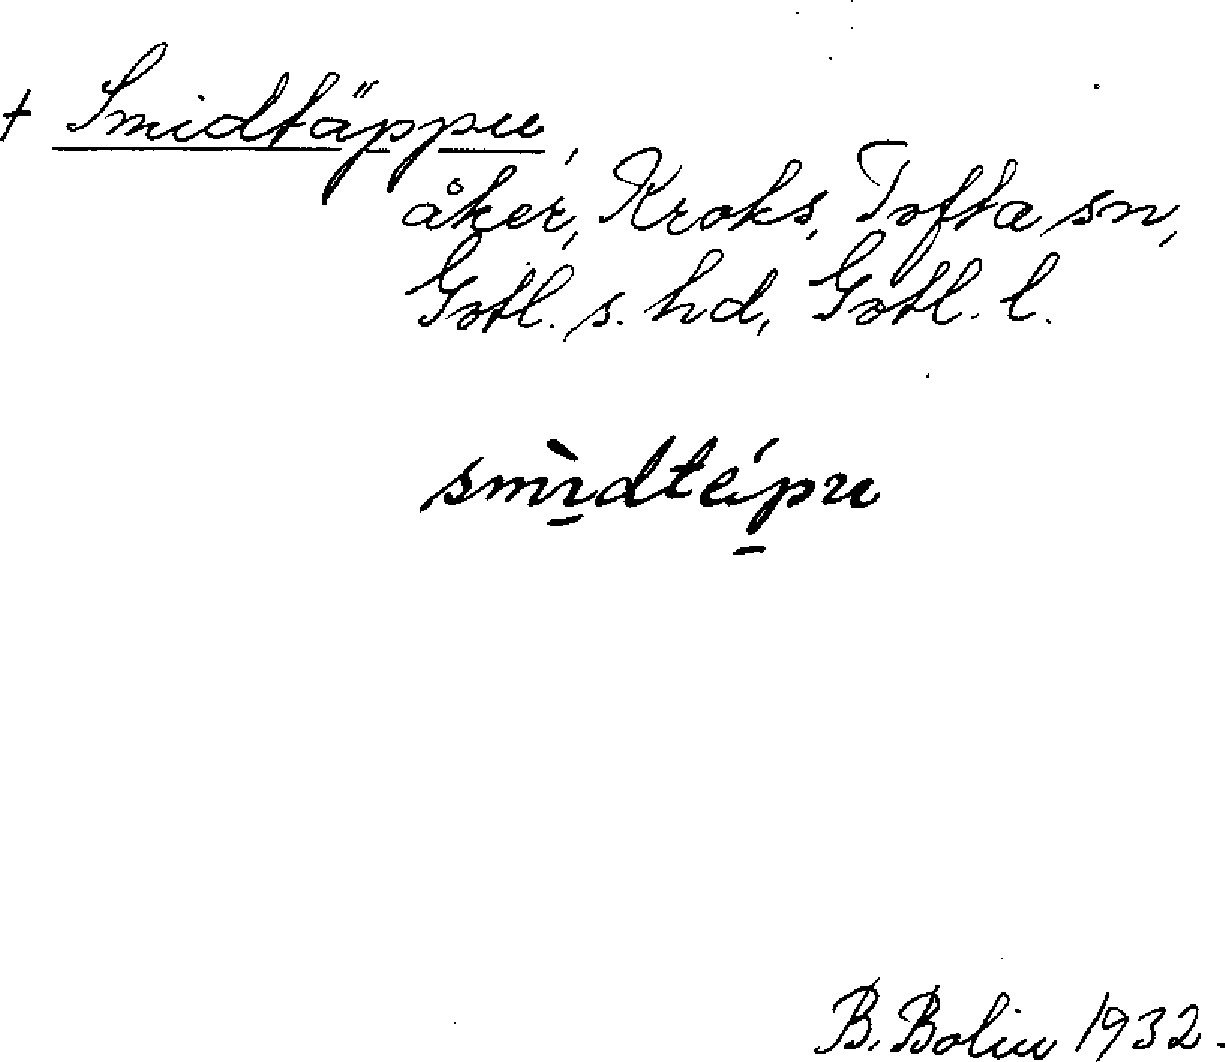 + Smidtäppu,
åker, Kroks, Tofta sn,
Gotl. s. hd, Gotl. l.
smìdtépu
B. Bolin 1932.